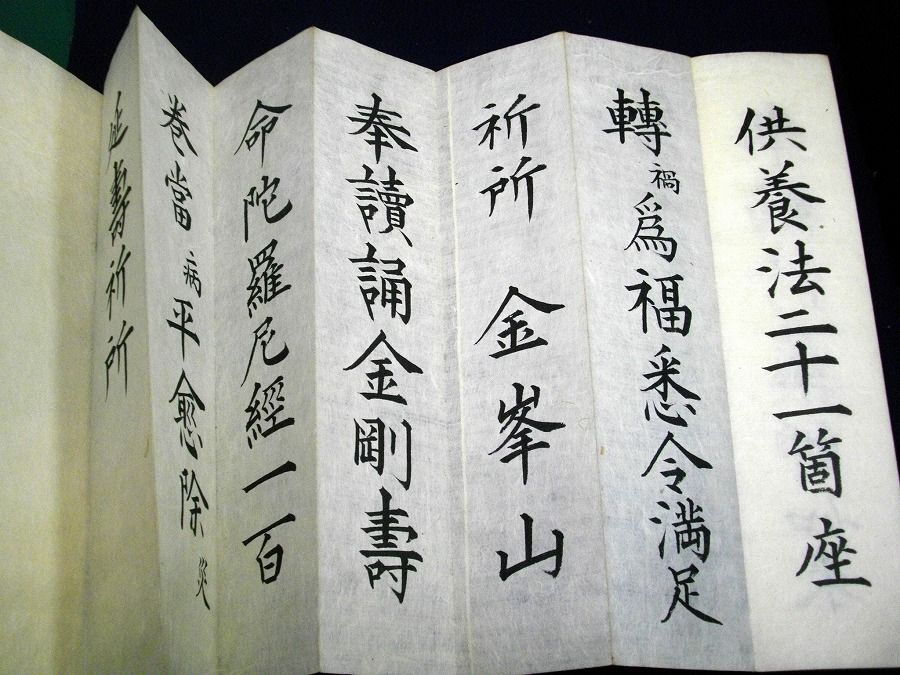 供養法二十一箇座
轉禍爲福悉令満足
祈所 金峯山
奉讀誦金剛壽
命陀羅尼經一百
巻當病平愈除災
延壽祈所